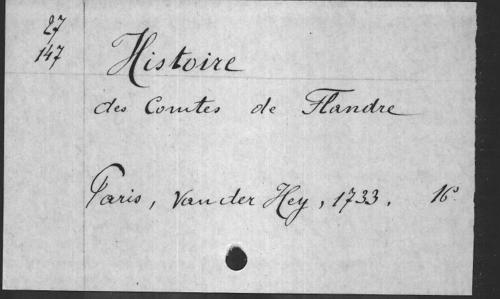 27
147
Histoire
des Comtes de Flandre
Paris, Van der Hey, 1733. 16°